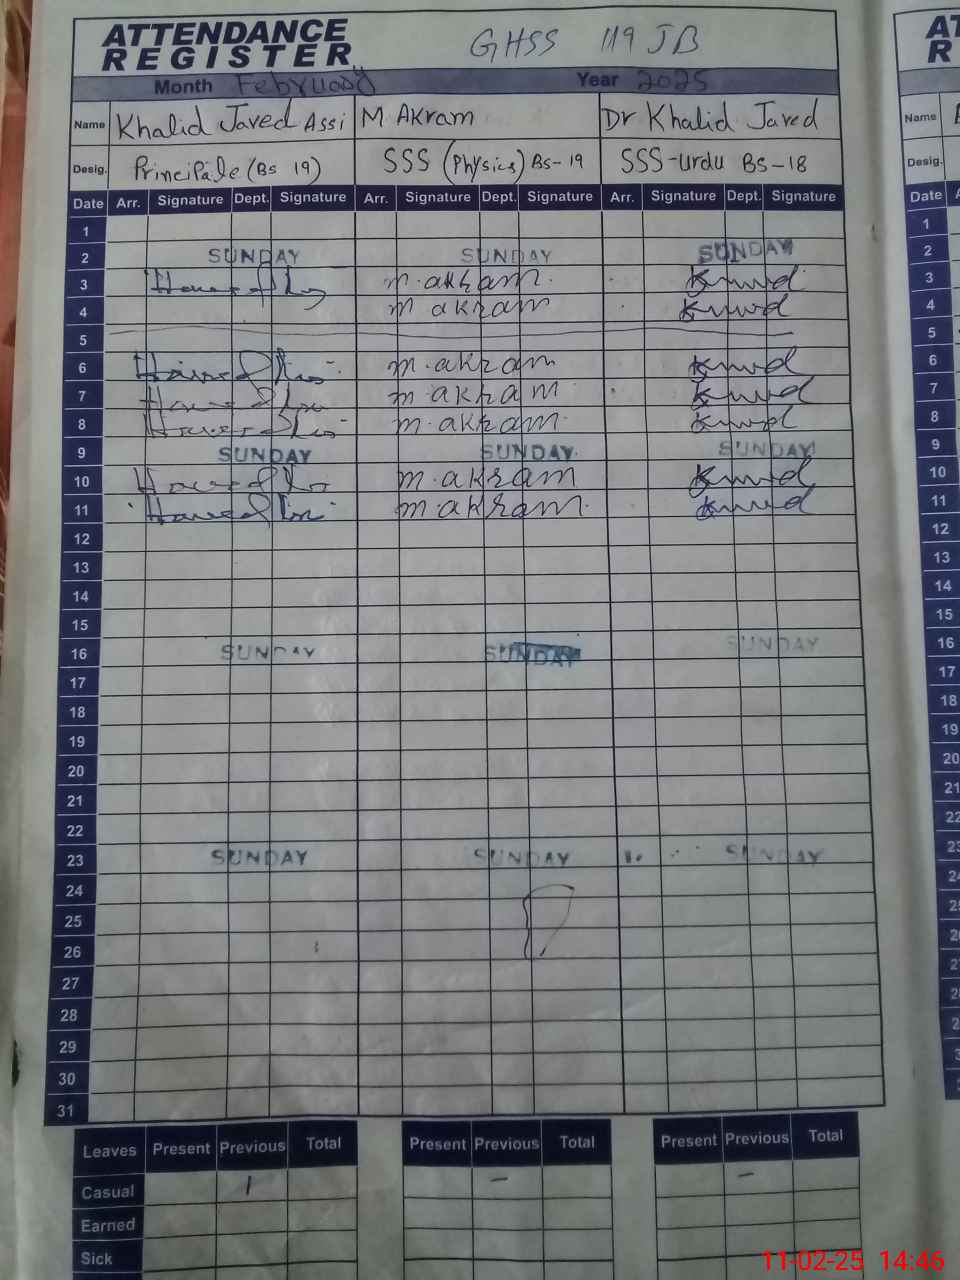 ATTENDANCE REGISTER GHSS 119 JB
Month February Year 2025
Name Khalid Javed Assi M Akram Dr Khalid Javed
Desig. Principale (Bs 19) SSS (Physics) Bs-19 SSS-Urdu Bs-18
Date Arr. Signature Dept. Signature Arr. Signature Dept. Signature Arr. Signature Dept. Signature
1
2 SUNDAY SUNDAY SUNDAY
3 m.akram.
4 m akram
5
6 m.akram
7 m.akram
8 m.akram.
9 SUNDAY SUNDAY. SUNDAY
10 m.akram
11 m.akram.
12
13
14
15
16 SUNDAY SUNDAY SUNDAY
17
18
19
20
21
22
23 SUNDAY SUNDAY SUNDAY
24
25
26
27
28
29
30
31
Leaves Present Previous Total Present Previous Total Present Previous Total
Casual 1 - -
Earned
Sick
Name
Desig.
Date
1
2
3
4
5
6
7
8
9
10
11
12
13
14
15
16
17
18
19
20
21
11-02-25 14:46